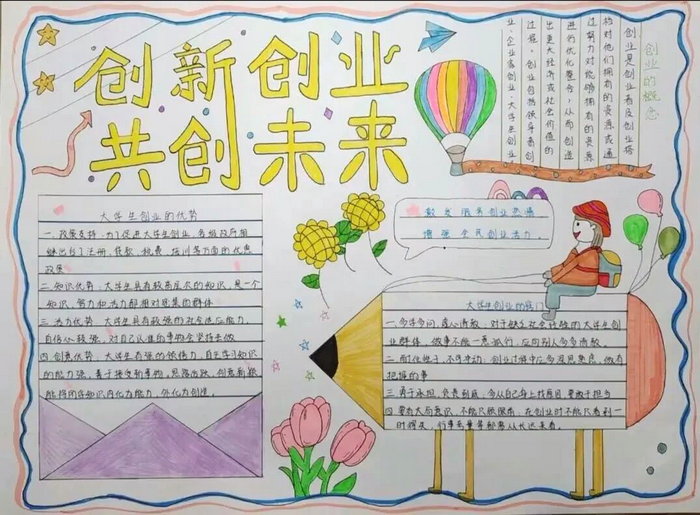 创新创业
共创未来
创业的概念
创业是创业者及创业搭
档对他们拥有的资源或通
过努力对能够拥有的资源
进行优化整合，从而创造
出更大经济或社会价值的
过程。创业包括领导者创
业、企业家创业、大学生创业
激发服务创业热情
增强全民创业活力。
大学生创业的优势
一、政策支持：为了促进大学生创业，各级政府相
继出台了注册、贷款、税费、培训等方面的优惠
政策
二、知识优势：大学生具有较高层次的知识，是一个
知识、智力和活力都相对密集的群体
三、活力优势：大学生具有较强的社会适应能力，
自信心较强，对自己认准的事物会坚持去做
四、创意优势：大学生有强的领悟力，自主学习知识
的能力强，善于接受新事物，思路活跃，创意新颖
能将所学知识内化为能力，外化为创造。
大学生创业的窍门
一、多学多问，虚心请教：对于缺乏社会经验的大学生创
业群体，做事不能一意孤行，应向别人多多请教。
二、耐住性子，不可冲动：创业过程中应多深思熟虑，做有
把握的事
三、勇于承担，负责到底：多从自己身上找原因，要敢于担当
四、要有大局意识，不能只顾眼前：在创业时不能只看到一
时得失，行事要量等都需从长远来看。